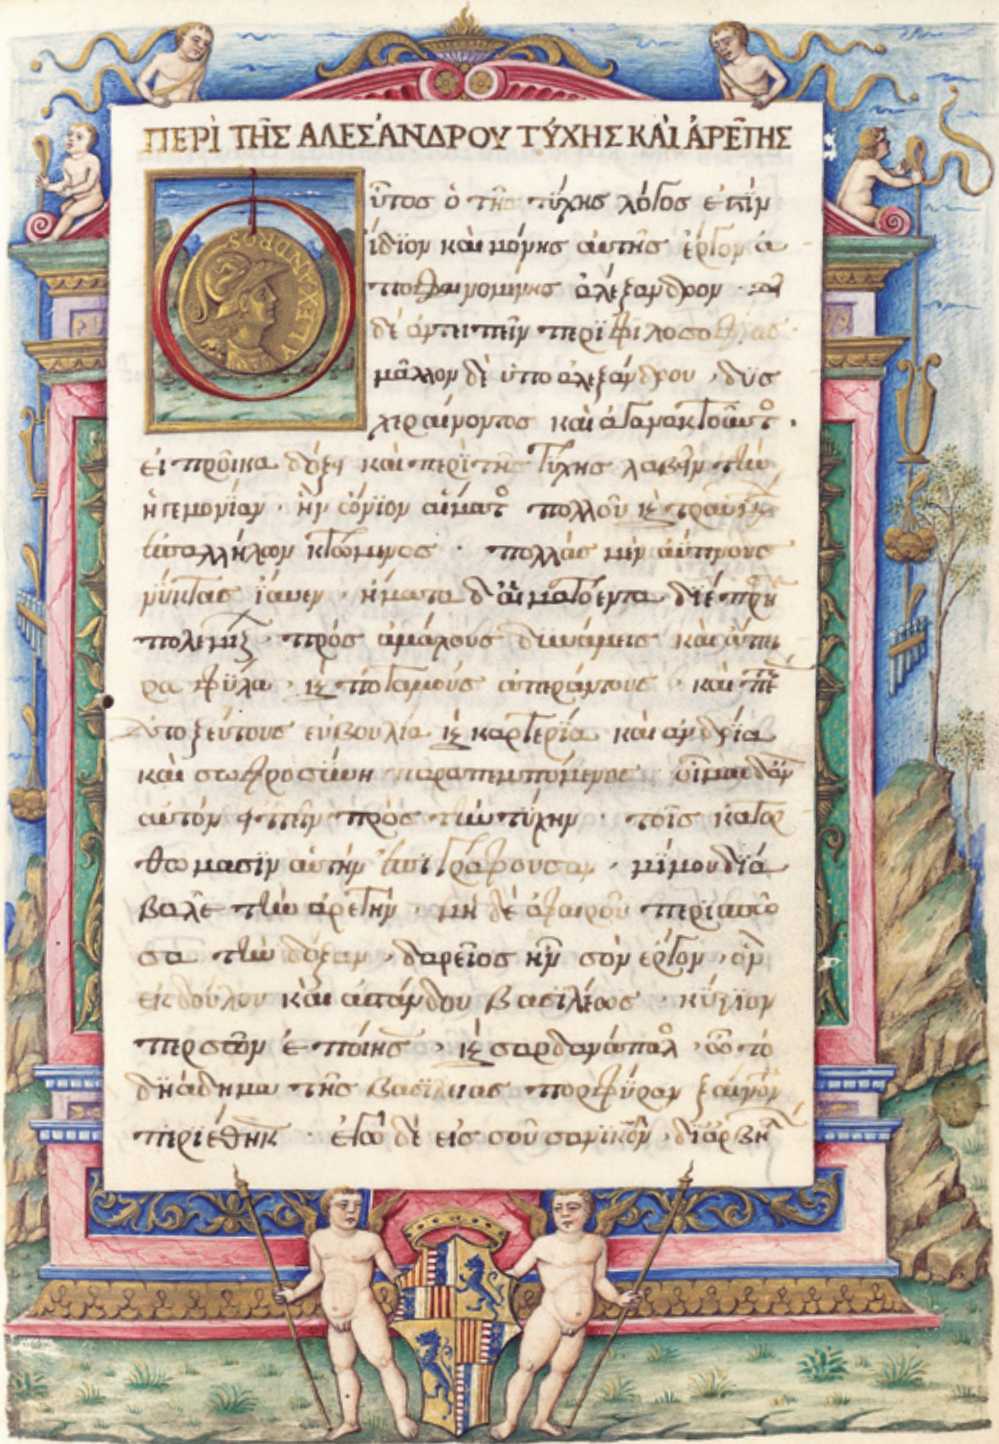 ΠΕΡῚ ΤΗ͂Σ ΑΛΕΣΆΝΔΡΟΥ ΤΎΧΗΣ ΚΑῚ ἈΡΕΤΗΣ
ALEXANDROS
Ο
ὗτος ὁ τῆς τύχης λόγος ἐστὶν
ἴδϊον καὶ μόνης αὐτῆς ἔργον ἀ
ποφαινομένης ἀλέξανδρον
δὲ ἀντειπεῖν περὶ φιλοσοφίας
μᾶλλον δὲ ὑπο ἀλεξάνδρου · δυς
χεραίνοντος καὶ ἀγανακτοῦντ ·
εἰ προῖκα δόξει καὶ περὶ τῆς τύχης λαβεῖν τὴν
ἡγεμονϊαν · ἣν αἵματ πολλοῦ κ τραυ
ἐπαλλήλων κτώμενος · πολλὰς μὲν ἀΰπνους
νύκτας ἴαυεν · ἤματα δ' αἱματόεντα διέπρη
πολεμίζ · πρὸς ἀμάχους δυνάμεις καὶ ἄπει
ρα φῦλα · κ ποταμοὺς ἀπεράντους · καὶ πε
ἀτοξεύτους εὐβουλία κ καρτερία καὶ ἀνδρία
καὶ σωφροσύνη παραπεμπόμενος οἶμαι δ' ἂν
αὐτὸν εἰπεῖν πρὸς τὴν τύχην · τοῖς κατορ
θωμασϊν αὐτὴν ἐπιγράφουσαν · μή μου διά
βαλε τὴν ἀρετὴν · μὴ δὲ ἀφαιροῦ περισπῶ
σα τὴν δόξαν · δαρεῖος ἦν σὸν ἔργον · ὃν
ἐκ δούλου καὶ ἀστάνδου βασϊλέως · κύρϊον
περσῶν ἐποίησ · κ σαρδανάπαλ · ᾧ τὸ
διάδημα τῆς βασϊλείας πορφύραν ξαίνον
περιέθηκ ἐγὼ δὲ εἰς σοῦσα νϊκῶν · δι' ἀρβή